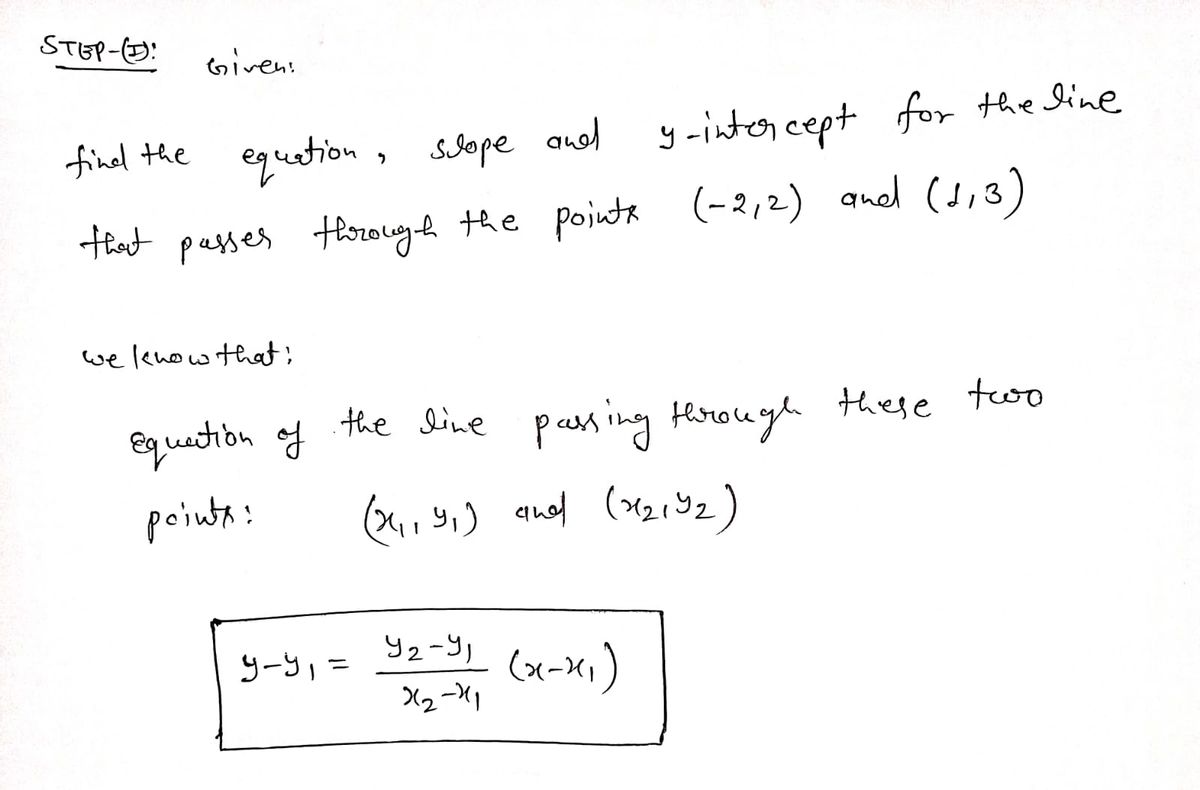 STEP-(I): Given:
find the equation, slope and y-intercept for the line
that passes through the points (-2,2) and (1,3)
we know that;
Equation of the line passing through these two
points: (x₁, y₁) and (x₂, y₂)
y-y₁ = \frac{y₂-y₁}{x₂-x₁} (x-x₁)